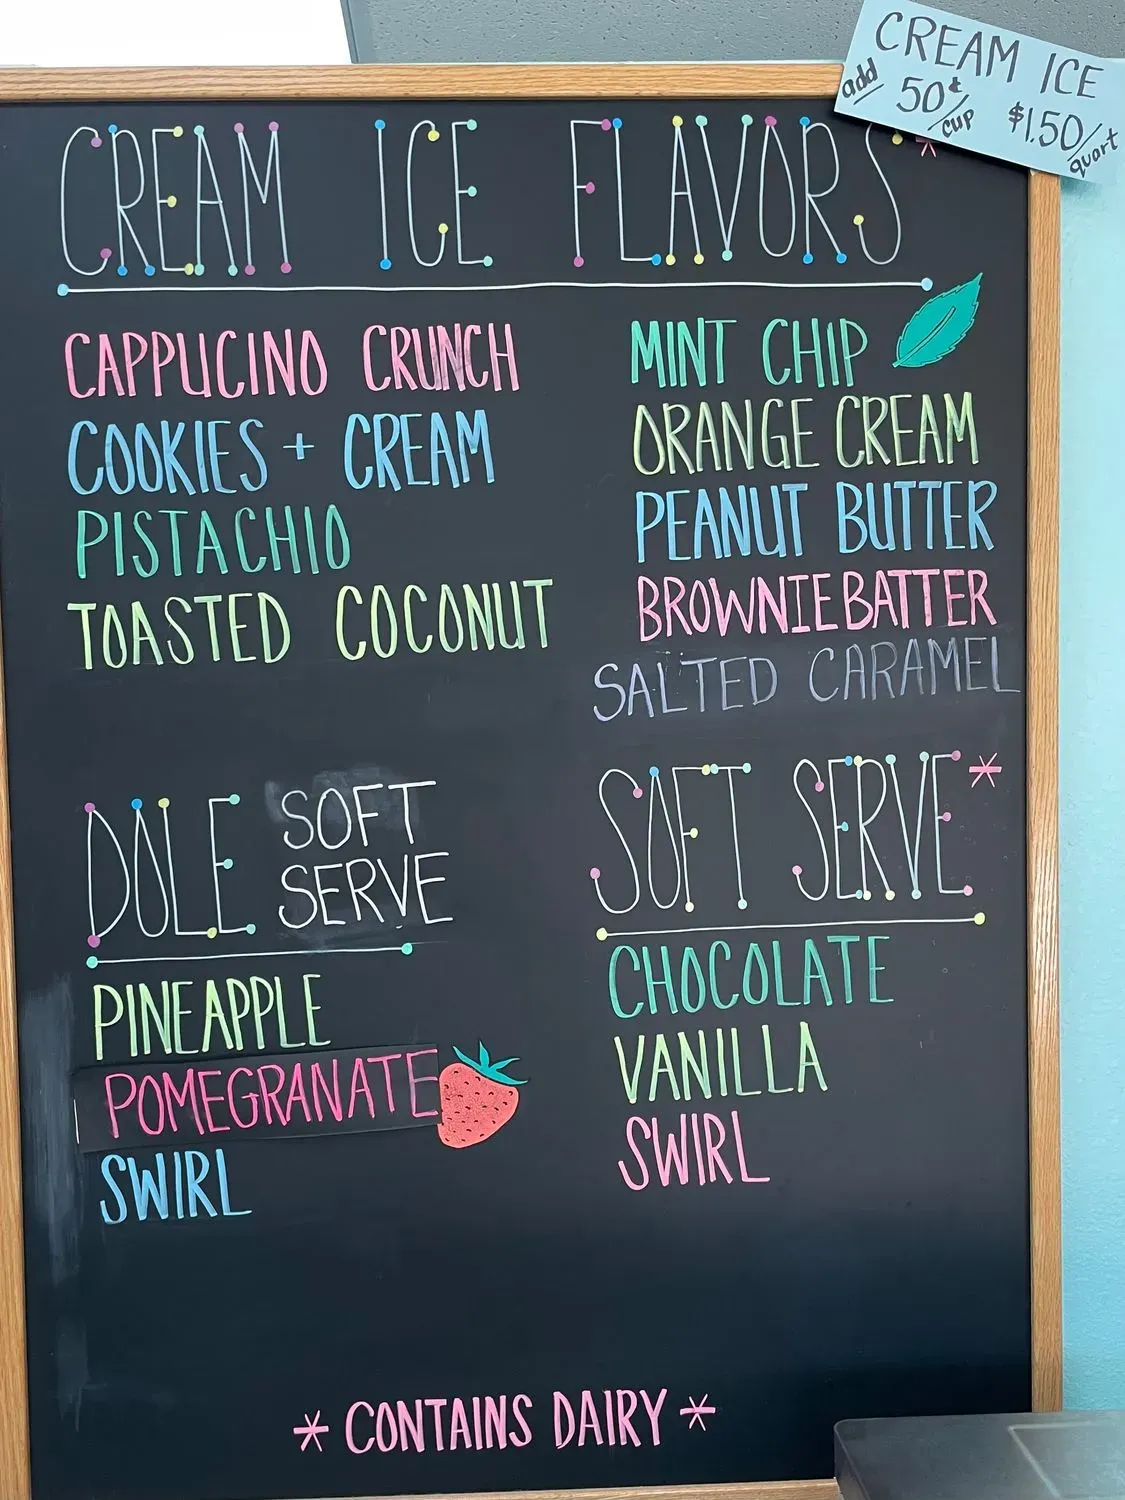 CREAM ICE
add 50¢/cup $1.50/quart
CREAM ICE FLAVORS*
CAPPUCINO CRUNCH
COOKIES + CREAM
PISTACHIO
TOASTED COCONUT
MINT CHIP
ORANGE CREAM
PEANUT BUTTER
BROWNIE BATTER
SALTED CARAMEL
DOLE SOFT
SERVE
PINEAPPLE
POMEGRANATE
SWIRL
SOFT SERVE*
CHOCOLATE
VANILLA
SWIRL
* CONTAINS DAIRY *